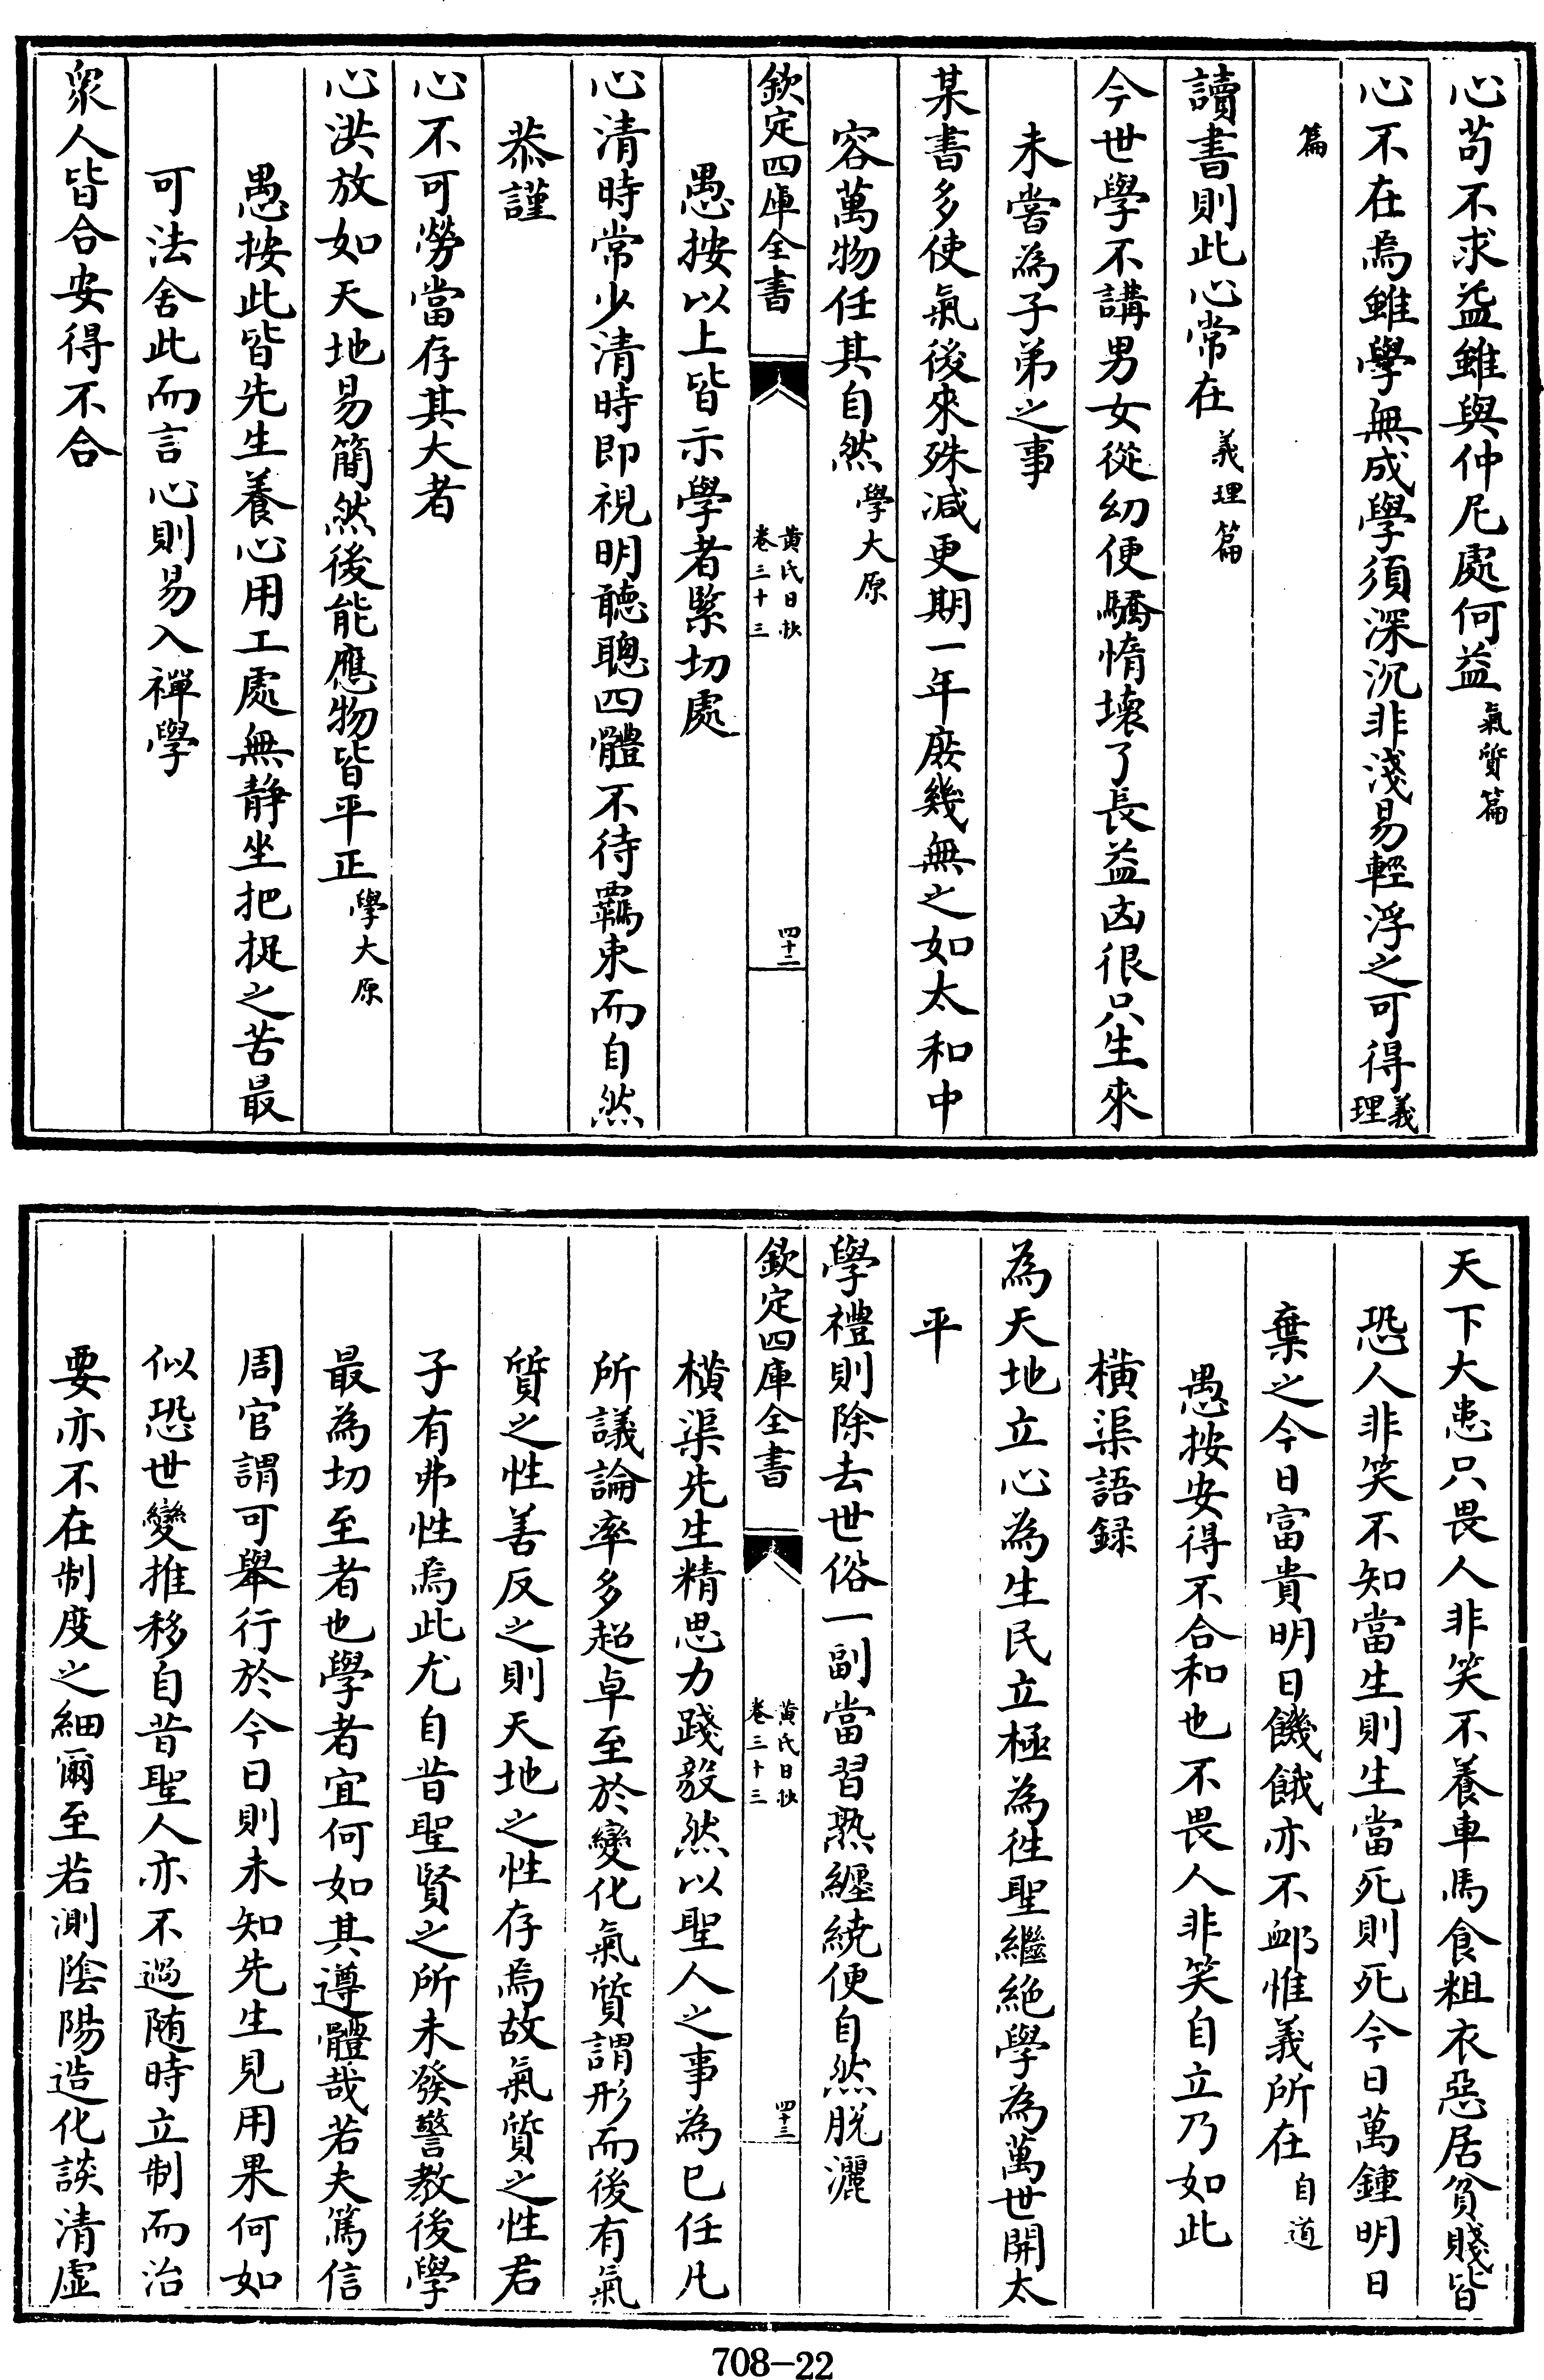 心苟不求益雖與仲尼處何益氣質篇
心不在焉雖學無成學須深沉非淺易輕浮之可得義理
篇
讀書則此心常在義理篇
今世學不講男女從幼便驕惰壞了長益凶很只生來
未嘗為子弟之事
某書多使氣後來殊减更期一年庶幾無之如太和中
容萬物任其自然學大原
欽定四庫全書
黄氏日抄
卷三十三
四十二
愚按以上皆示學者緊切處
心清時常少清時即視明聽聰四體不待羈束而自然
恭謹
心不可勞當存其大者
心洪放如天地易簡然後能應物皆平正學大原
愚按此皆先生養心用工處無静坐把捉之苦最
可法舍此而言心則易入禪學
衆人皆合安得不合
天下大患只畏人非笑不養車馬食粗衣惡居貧賤皆
恐人非笑不知當生則生當死則死今日萬鍾明日
棄之今日富貴明日饑餓亦不䘏惟義所在自道
愚按安得不合和也不畏人非笑自立乃如此
橫渠語録
為天地立心為生民立極為徃聖繼絶學為萬世開太
平
學禮則除去世俗一副當習熟纏繞便自然脱灑
欽定四庫全書
黄氏日抄
卷三十三
四十三
橫渠先生精思力踐毅然以聖人之事為已任凡
所議論率多超卓至於變化氣質謂形而後有氣
質之性善反之則天地之性存焉故氣質之性君
子有弗性焉此尤自昔聖賢之所未發警教後學
最為切至者也學者宜何如其遵體哉若夫篤信
周官謂可舉行於今日則未知先生見用果何如
似恐世變推移自昔聖人亦不過随時立制而治
要亦不在制度之細爾至若測陰陽造化談清虚
708-22